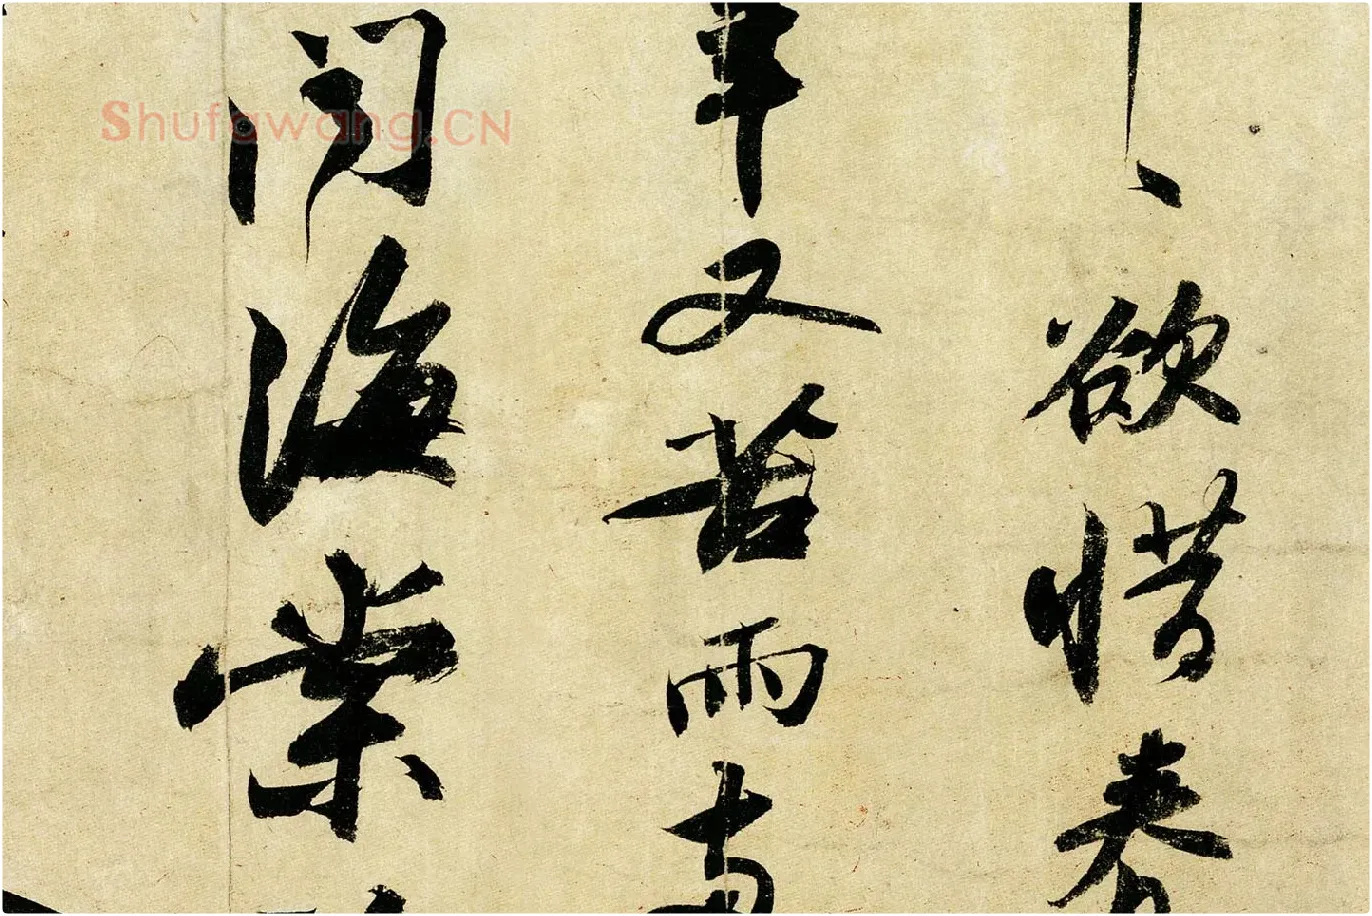 、欲惜春
年又苦雨兩
聞海棠
Shufawang.CN